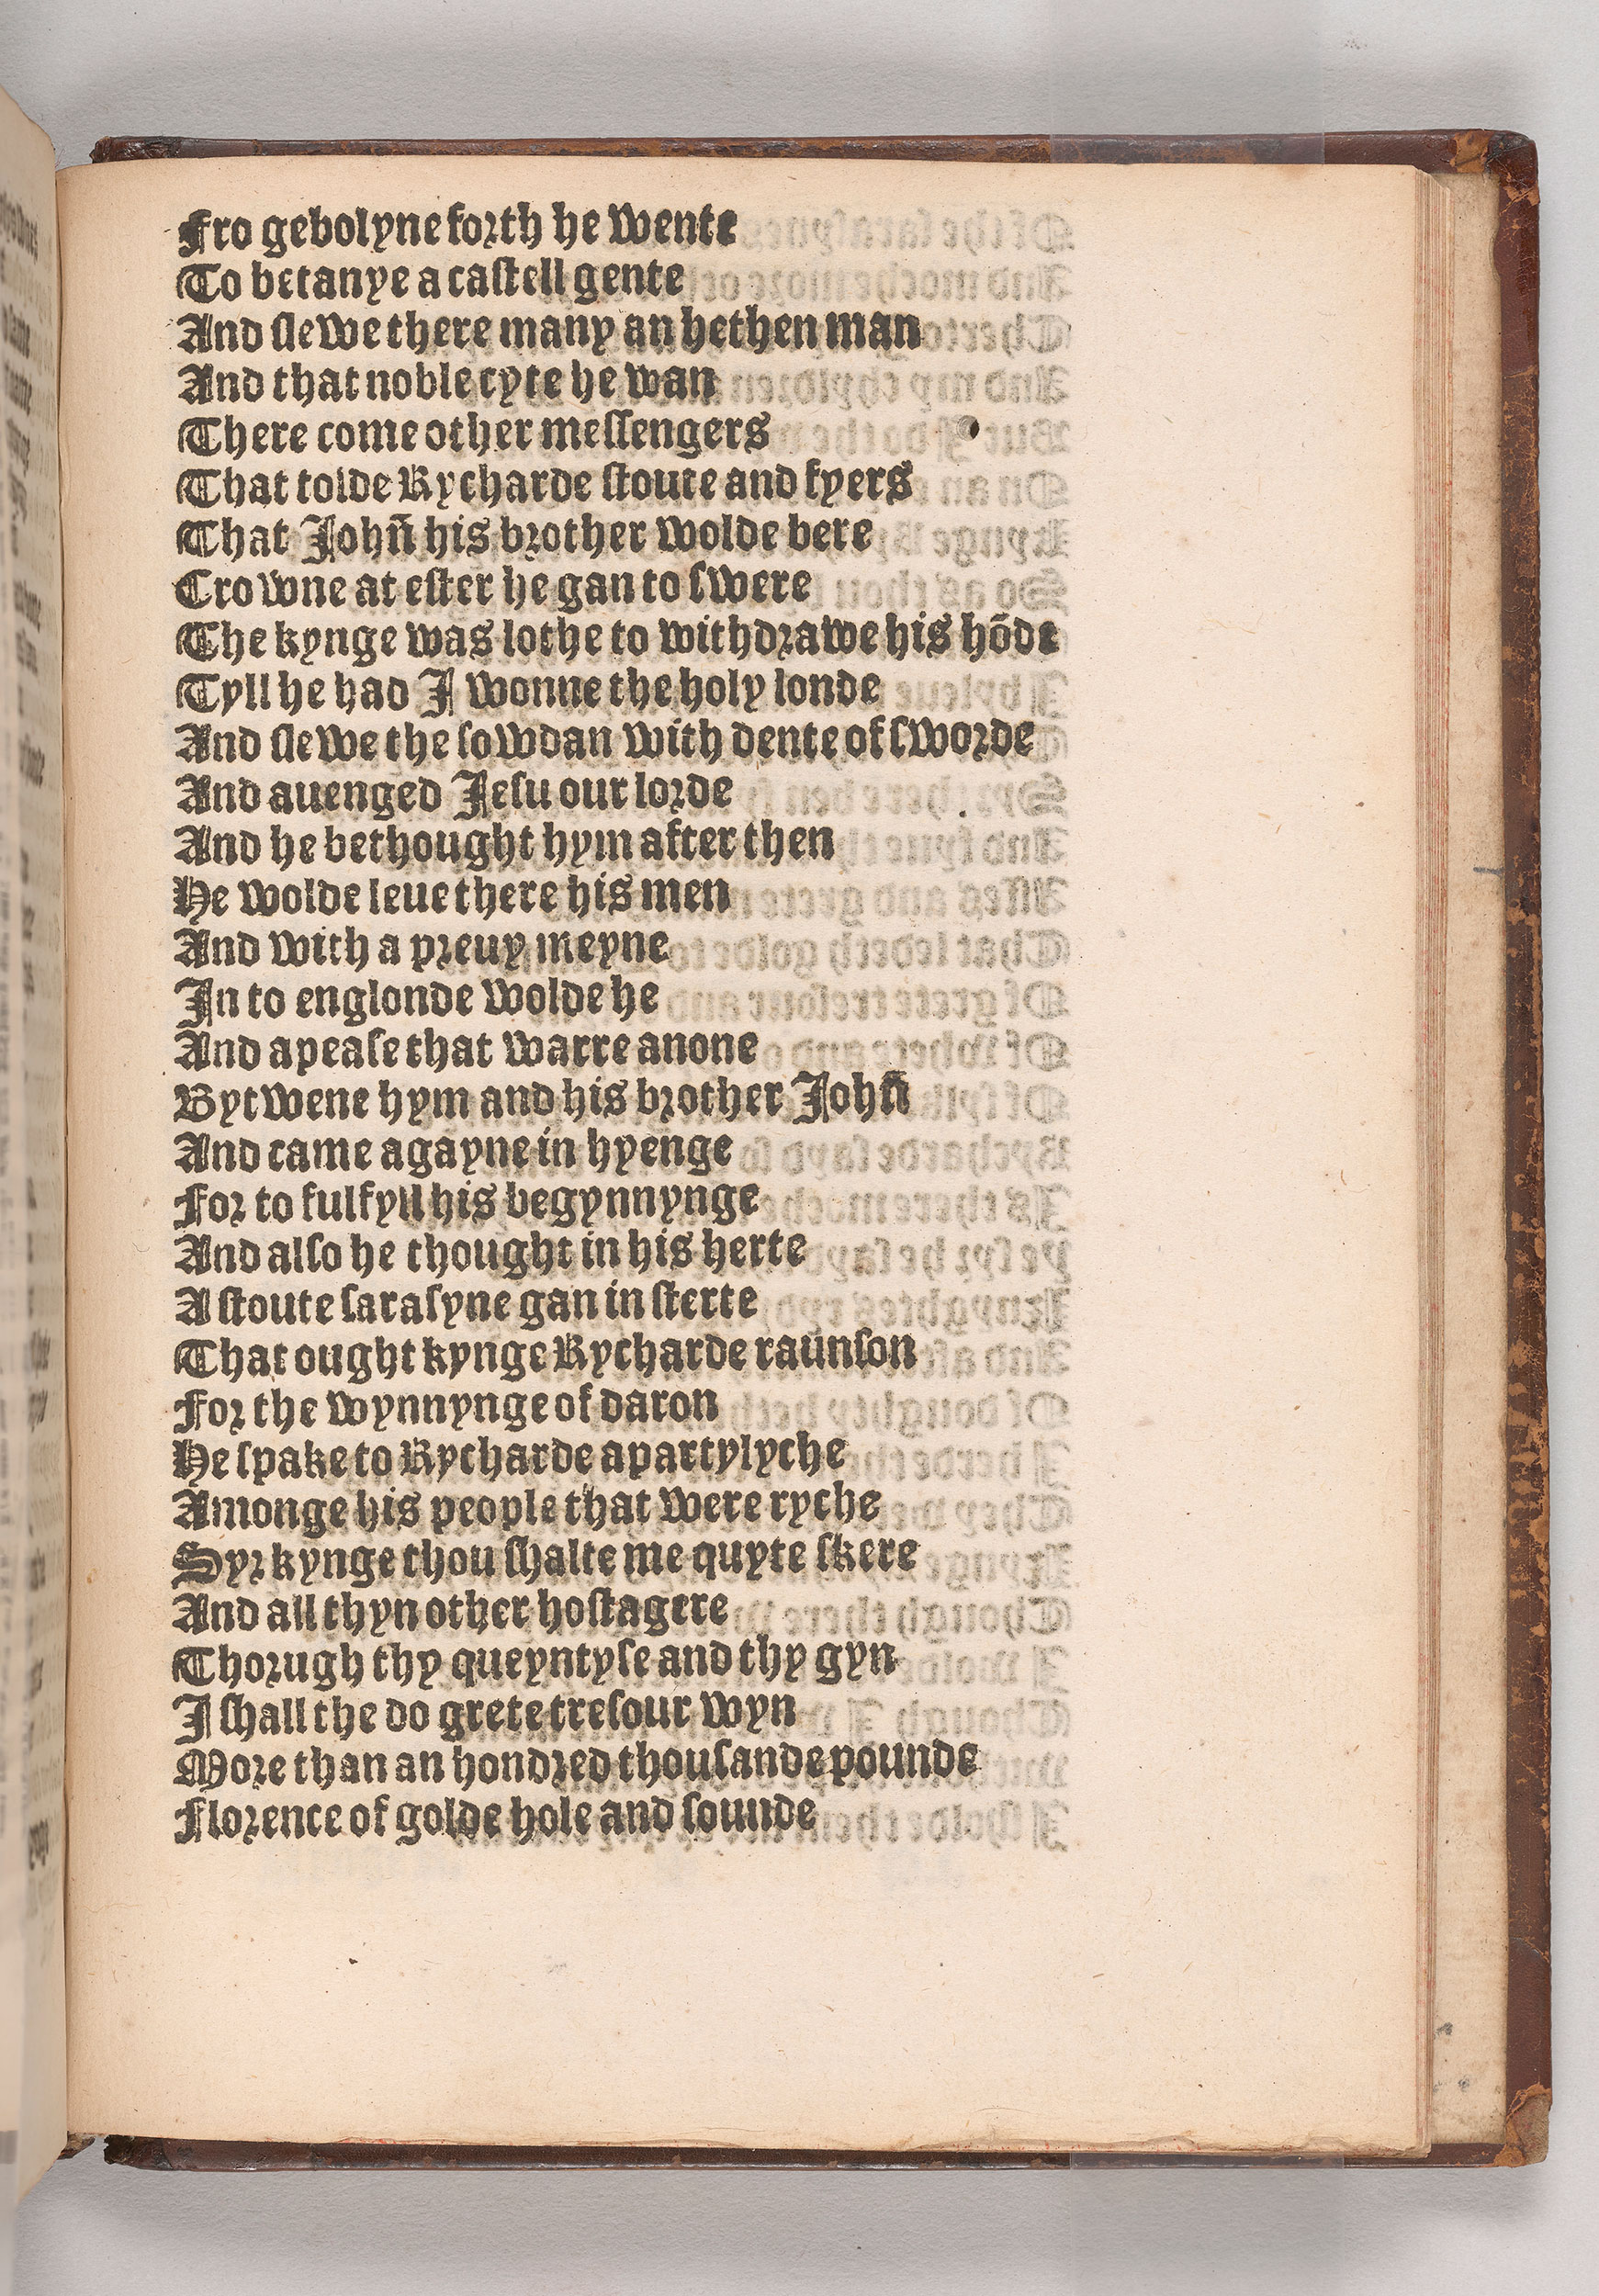 Fro gebolyne forth he wente
To betanye a castell gente
And slewe there many an hethen man
And that noble cyte he wan
There come other messengers
That tolde Rycharde stoute and fyers
That Johñ his brother wolde bere
Crowne at ester he gan to swere
The kynge was lothe to withdrawe his hõde
Tyll he had I wonne the holy londe
And slewe the sowdan with dente of sworde
And auenged Jesu our lorde
And he bethought hym after then
He wolde leue there his men
And with a preuy meyne
In to englonde wolde he
And apease that warre anone
Bytwene hym and his brother Johñ
And came agayne in hyenge
For to fulfyll his begynnynge
And also he thought in his herte
A stoute sarasyne gan in sterte
That ought kynge Rycharde raũnson
For the wynnynge of daron
He spake to Rycharde apartylyche
Amonge his people that were ryche
Syr kynge thou shalte me quyte skere
And all thyn other hostagere
Thorugh thy queyntyse and thy gyn
I shall the do grete tresour wyn
More than an hondred thousande pounde
Florence of golde hole and sounde